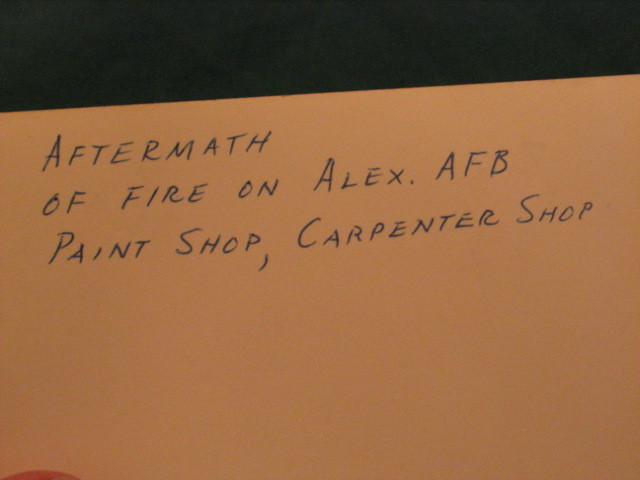 AFTERMATH
OF FIRE ON ALEX. AFB
PAINT SHOP, CARPENTER SHOP